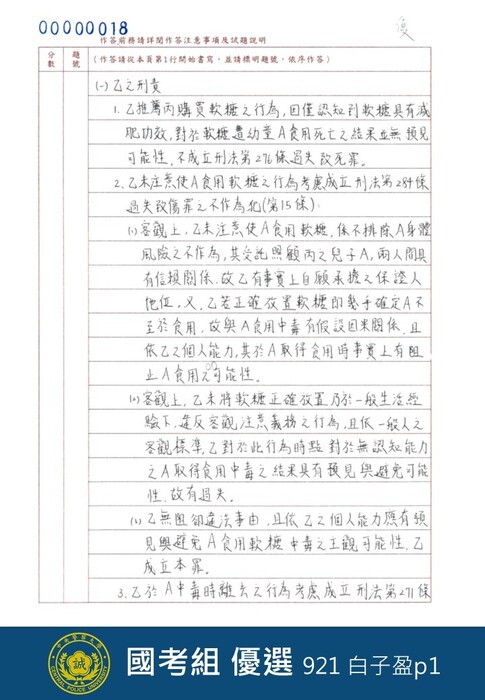 00000018
優
作答前務請詳閱作答注意事項及試題說明
分數
題號
(作答請從本頁第1行開始書寫,並請標明題號,依序作答)
(一) 乙之刑責
1. 乙推薦丙購買軟糖之行為,因僅認知到軟糖具有減
肥功效,對於軟糖遭幼童A食用死亡之結果並無預見
可能性,不成立刑法第276條過失致死罪。
2. 乙未注意使A食用軟糖之行為考慮成立刑法第284條
過失致傷罪之不作為犯(第15條):
(1) 客觀上,乙未注意使A食用軟糖,係不排除A身體
風險之不作為,其受託照顧丙之兒子A,兩人間具
有信賴關係,故乙有事實上自願承擔之保證人
地位。又,乙若正確放置軟糖即幾乎確定A不
至於食用,故與A食用中毒有假設因果關係,且
依乙之個人能力,其於A取得食用時事實上有阻
止A食用之可能性。
(2) 客觀上,乙未將軟糖正確放置乃於一般生活經
驗下,違反客觀注意義務之行為,且依一般人之
客觀標準,乙對於此行為時點對於無認知能力
之A取得食用中毒之結果具有預見與避免可能
性,故有過失。
(3) 乙無阻卻違法事由,且依乙之個人能力應有預
見與避免A食用軟糖中毒之主觀可能性,乙
成立本罪。
3. 乙於A中毒時離去之行為考慮成立刑法第271條
中央警察大學
誠
CENTRAL POLICE UNIVERSITY
國考組 優選 921 白子盈p1